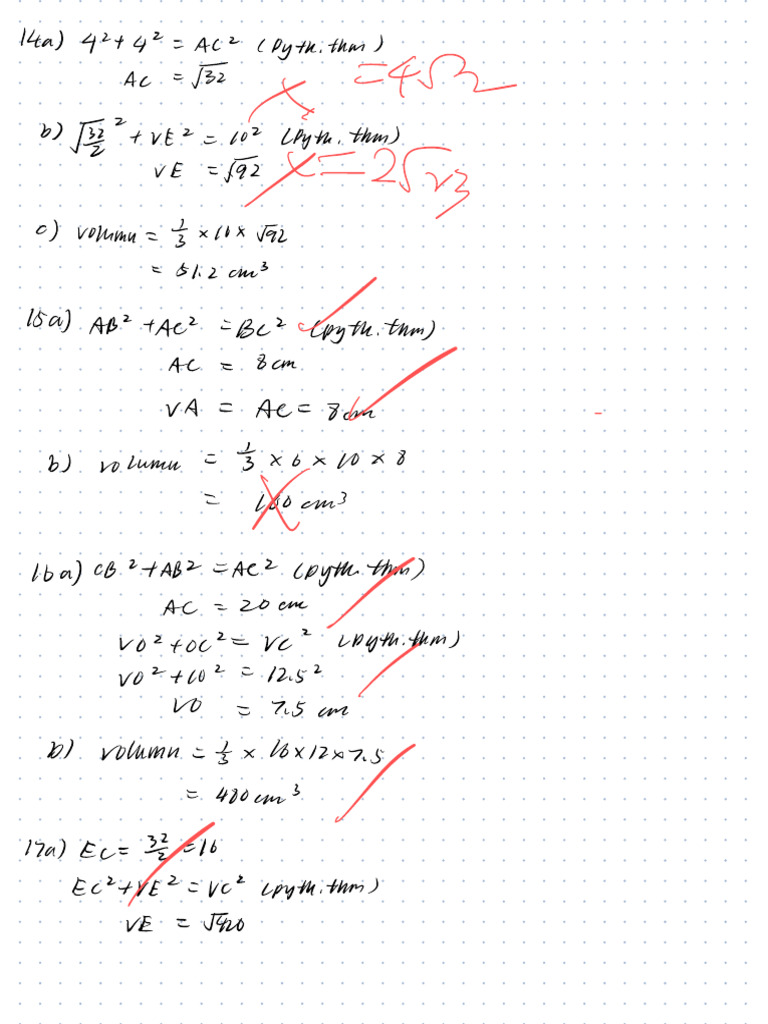 14a) 4² + 4² = AC² (pyth. thm)
AC = √32 = 4√2
b) √32/2² + VE² = 10² (pyth. thm)
VE = √92 = 2√23
c) volumn = 1/3 × 16 × √92
= 51.2 cm³
15a) AB² + AC² = BC² (pyth. thm)
AC = 8cm
VA = AC = 8cm
b) volumn = 1/3 × 6 × 10 × 8
= 160 cm³
16a) CB² + AB² = AC² (pyth. thm)
AC = 20 cm
VO² + OC² = VC² (pyth. thm)
VO² + 10² = 12.5²
VO = 7.5 cm
b) volumn = 1/3 × 16 × 12 × 7.5
= 480 cm³
17a) EC = 32/2 = 16
EC² + VE² = VC² (pyth. thm)
VE = √420